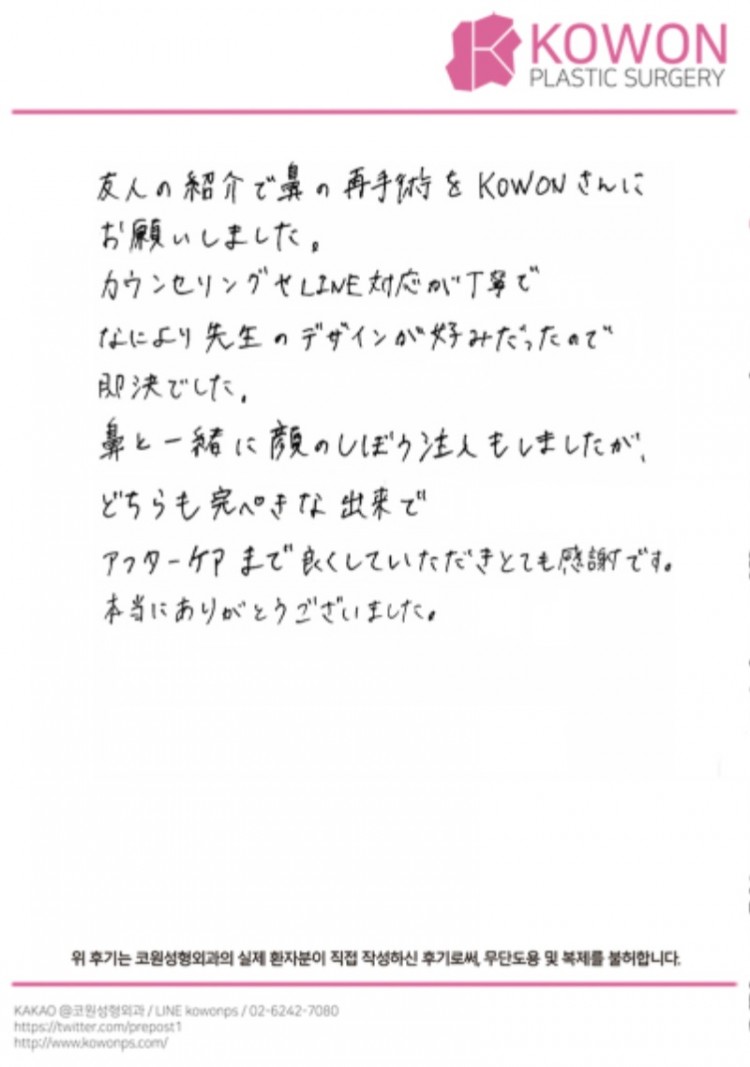 KOWON
PLASTIC SURGERY
友人の紹介で鼻の再手術をKOWONさんに
お願いしました。
カウンセリングやLINE対応が丁寧で
なにより先生のデザインが好みだったので
即決でした。
鼻と一緒に顔のしぼう注入もしましたが、
どちらも完ぺきな出来で
アフターケアまで良くしていただきとても感謝です。
本当にありがとうございました。
위 후기는 코원성형외과의 실제 환자분이 직접 작성하신 후기로써, 무단도용 및 복제를 불허합니다.
KAKAO @코원성형외과 / LINE kowonps / 02-6242-7080
https://twitter.com/prepost1
http://www.kowonps.com/